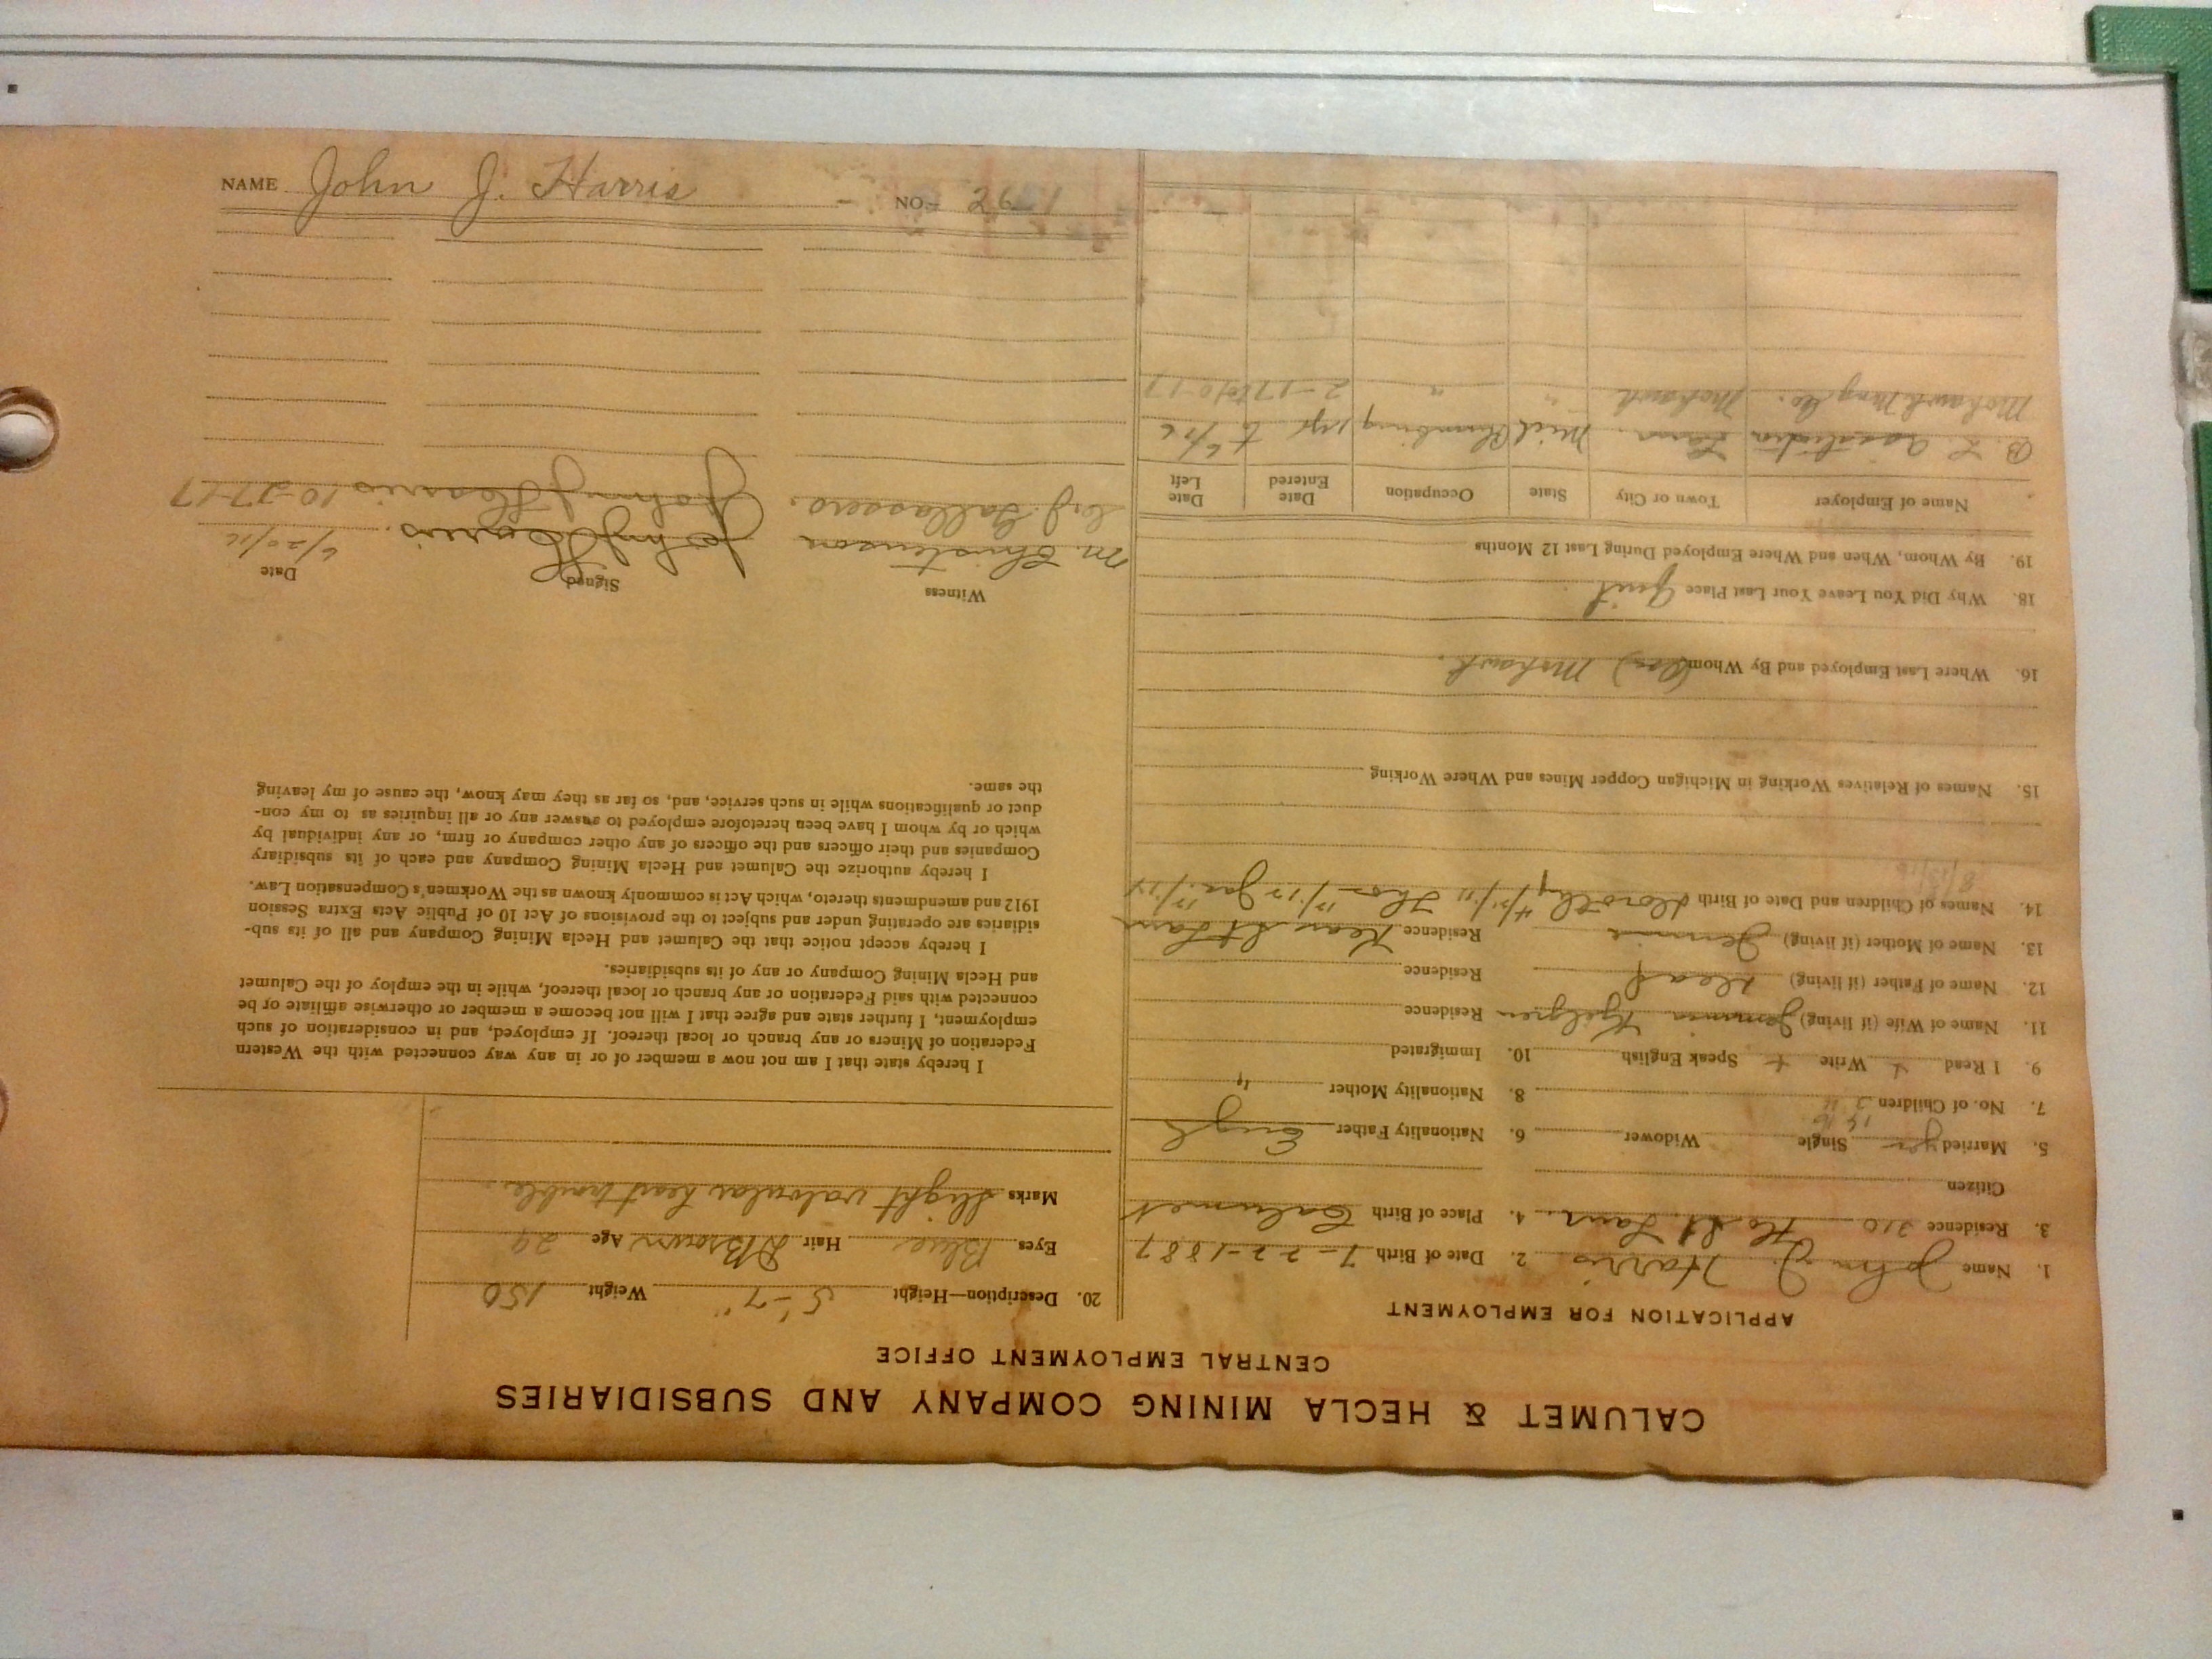 CALUMET & HECLA MINING COMPANY AND SUBSIDIARIES
CENTRAL EMPLOYMENT OFFICE
APPLICATION FOR EMPLOYMENT
1. Name John J. Harris 2. Date of Birth 7-22-1887
3. Residence 310 St. Laur. 4. Place of Birth Calumet
Citizen
5. Married yes Single Widower 6. Nationality Father Engl
7. No. of Children 8. Nationality Mother "
9. I Read Write Speak English 10. Immigrated
11. Name of Wife (if living) Residence
12. Name of Father (if living) Dead Residence
13. Name of Mother (if living) Residence Kear St Laur
14. Names of Children and Date of Birth Dorothy
15. Names of Relatives Working in Michigan Copper Mines and Where Working
16. Where Last Employed and By Whom Mohawk.
18. Why Did You Leave Your Last Place Quit
19. By Whom, When and Where Employed During Last 12 Months
Name of Employer Town or City State Occupation Date Entered Date Left
Laur. Mich Plumbing
Mohawk Mng Co. Mohawk " " 2-17 to 10-17
20. Description—Height 5'-7" Weight 150
Eyes Blue Hair D Brown Age 29
Marks Slight valvular heart trouble.
I hereby state that I am not now a member of or in any way connected with the Western
Federation of Miners or any branch or local thereof. If employed, and in consideration of such
employment, I further state and agree that I will not become a member or otherwise affiliate or be
connected with said Federation or any branch or local thereof, while in the employ of the Calumet
and Hecla Mining Company or any of its subsidiaries.
I hereby accept notice that the Calumet and Hecla Mining Company and all of its sub-
sidiaries are operating under and subject to the provisions of Act 10 of Public Acts Extra Session
1912 and amendments thereto, which Act is commonly known as the Workmen's Compensation Law.
I hereby authorize the Calumet and Hecla Mining Company and each of its subsidiary
Companies and their officers and the officers of any other company or firm, or any individual by
which or by whom I have been heretofore employed to answer any or all inquiries as to my con-
duct or qualifications while in such service, and, so far as they may know, the cause of my leaving
the same.
Witness Signed Date
M. Christenson John J Harris. 6/20/16
John J Harris 10-27-17
NAME John J. Harris NO. 26